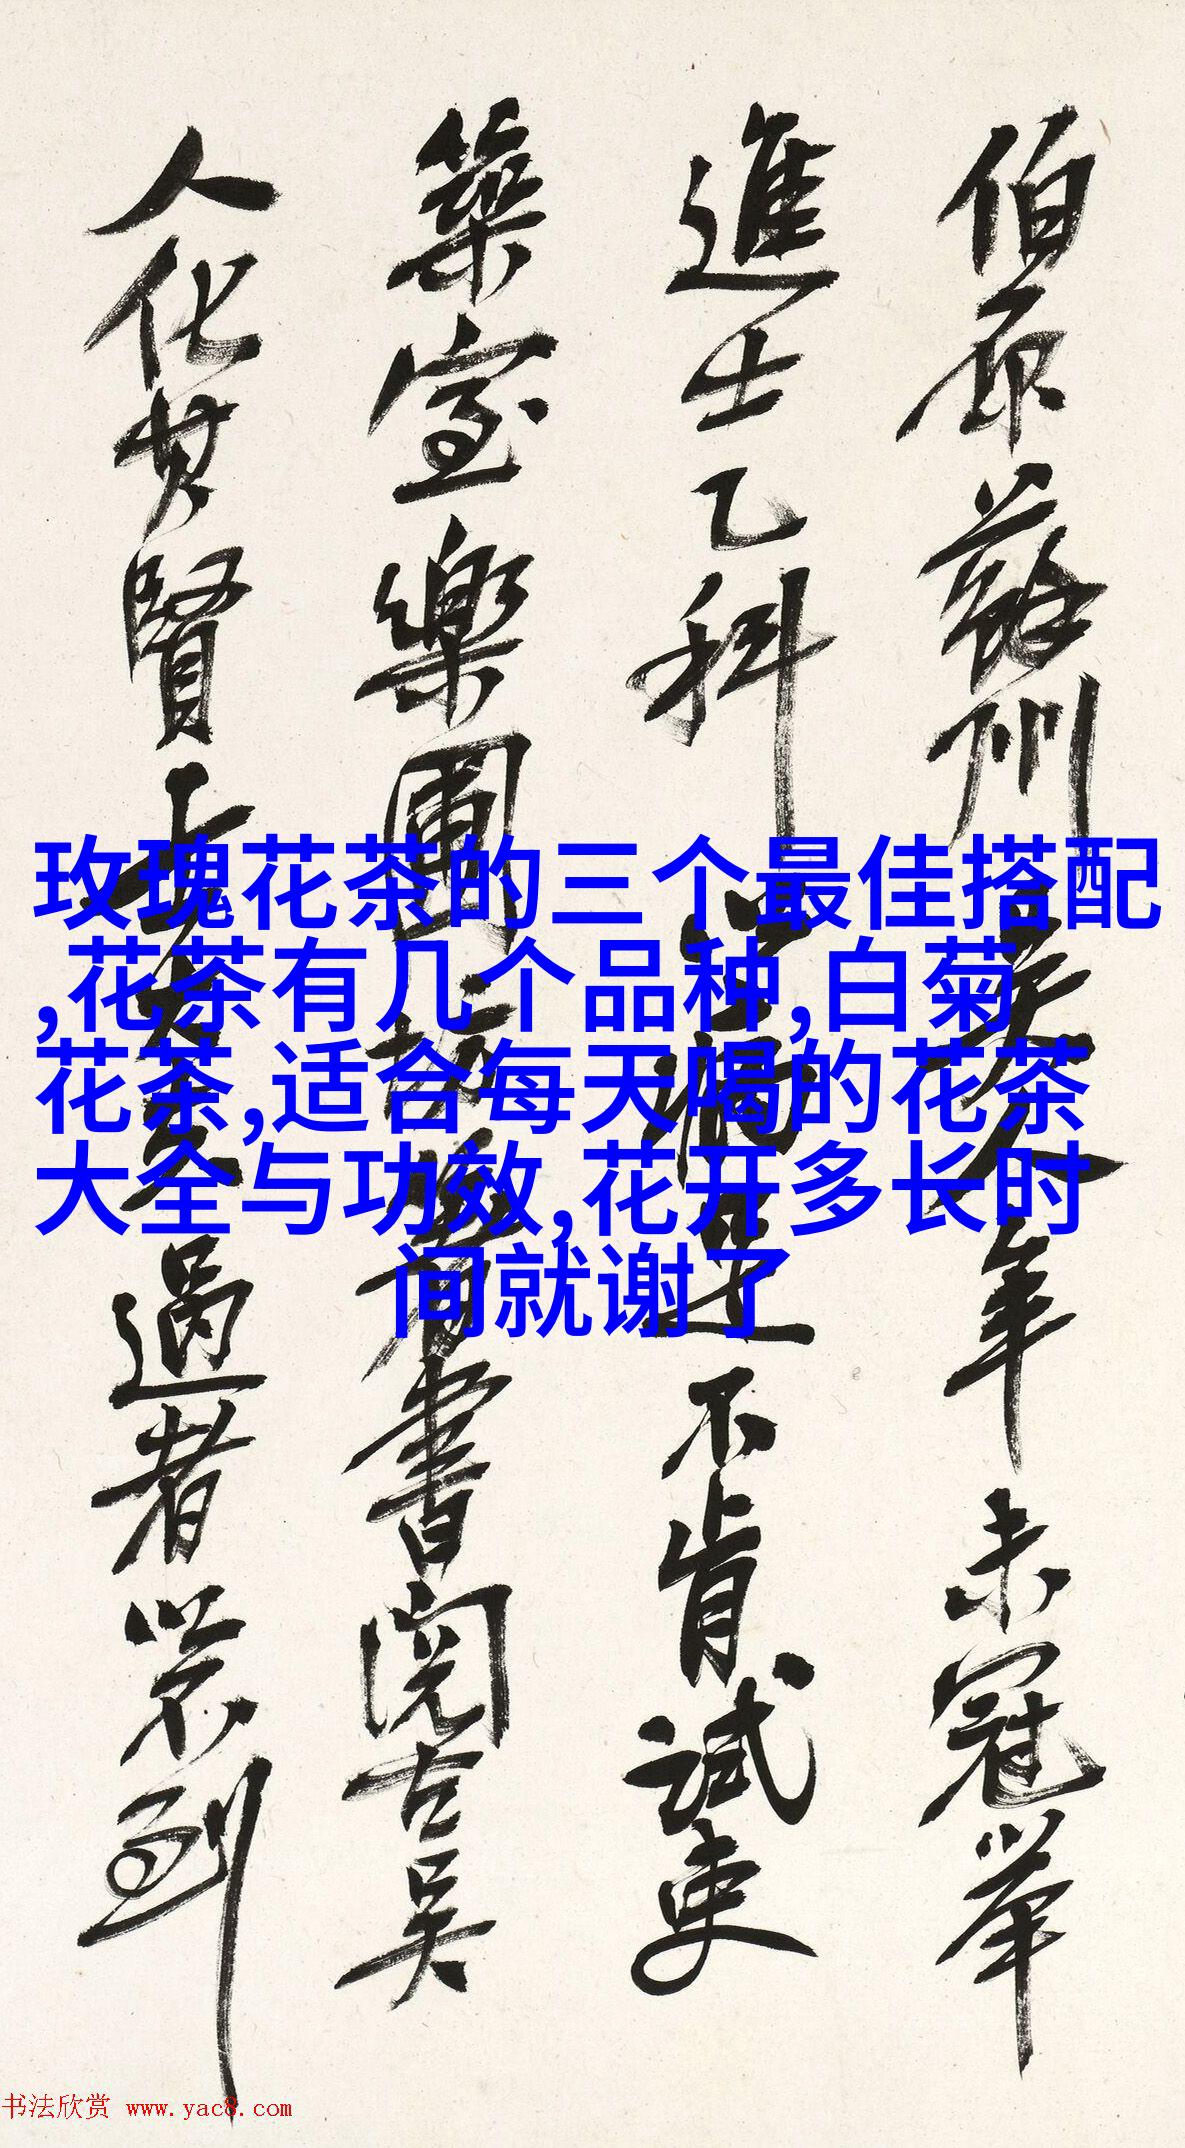 伯原蘇州吳人年未冠舉
進士乙科以
不肯試吏
築室樂圃
著書閱古吳
人化其賢
過者以不到
玫瑰花茶的三个最佳搭配
,花茶有几个品种,白菊
花茶,适合每天喝的花茶
大全与功效,花开多长时
间就谢了
书法欣赏 www.yac8.com